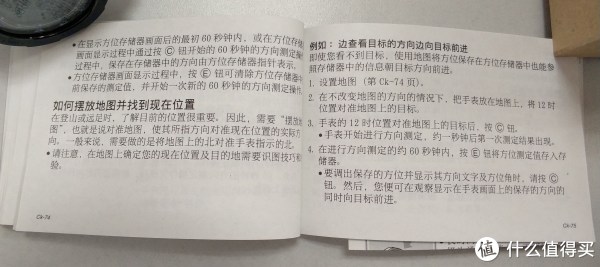 • 在显示方位存储器画面后的最初 60 秒钟内，或在方位存储器
画面显示过程中通过按 Ⓒ 钮开始的 60 秒钟的方向测定操作
过程中，保存在存储器中的方向由方位存储器指针表示。
• 方位存储器画面显示过程中，按 Ⓔ 钮可清除方位存储器中目
前保存的测定值，并开始一次新的 60 秒钟的方向测定操作。
如何摆放地图并找到现在位置
在登山或远足时，了解目前的位置很重要。因此，需要“摆放地
图”，也就是说对准地图，使其所指方向对准现在位置的实际方
向。一般来说，需要做的是将地图上的北对准手表指示的北。
• 请注意，在地图上确定您的现在位置及目的地需要识图技巧和经
验。
CK-74
例如： 边查看目标的方向边向目标前进
即使您看不到目标，使用地图将方位保存在方位存储器中也能参
照存储器中的信息朝目标方向前进。
1. 设置地图（第 Ck-74 页）。
2. 在不改变地图的方向的情况下，把手表放在地图上，将 12时
位置对准地图上的目标。
3. 手表的 12时位置对准地图上的目标后，按 Ⓒ 钮。
• 手表开始进行方向测定，约一秒钟后第一次测定结果出现。
4. 在进行方向测定的约 60 秒钟内，按 Ⓔ 钮将方位测定值存入存
储器。
• 要调出保存的方位并显示其方向文字及方位角时，请按 Ⓒ
钮。然后，您便可在观察显示在手表画面上的保存的方向的
同时向目标前进。
CK-75
值 什么值得买